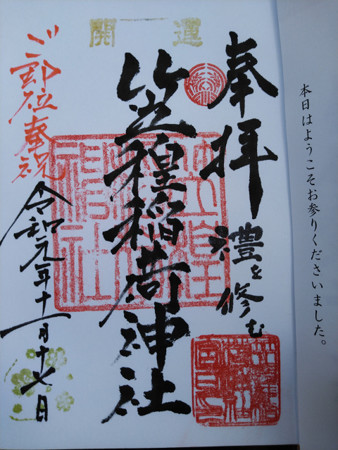 本日はようこそお参りくださいました。
開運
奉拝
禮を修む
笠䅣稲荷神社
ご即位奉祝
令和元年十一月十七日